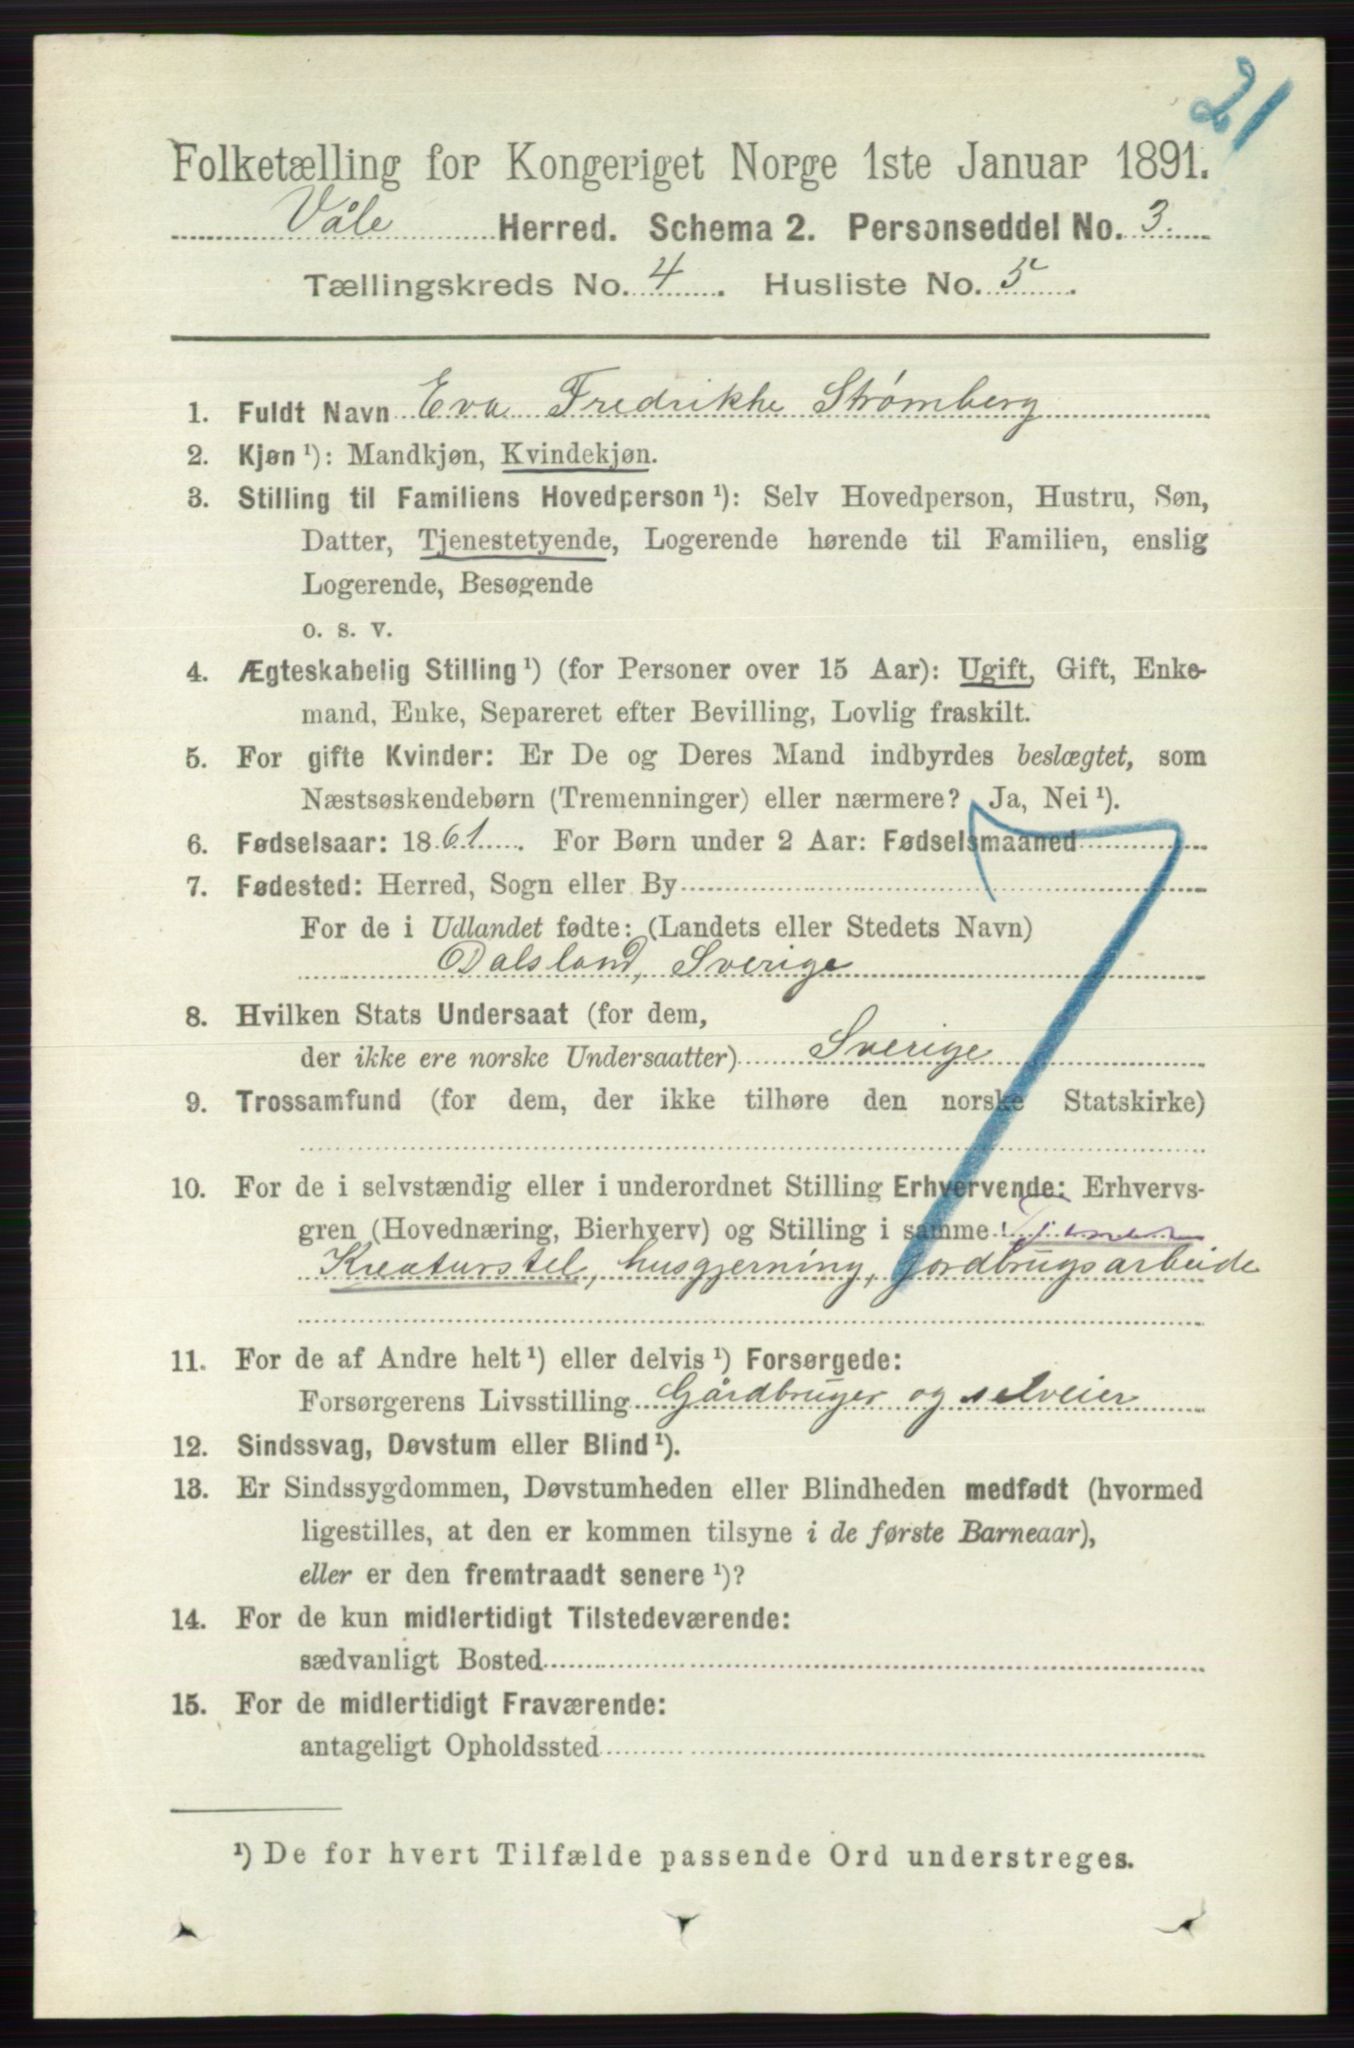 21
Folketælling for Kongeriget Norge 1ste Januar 1891.
Våle Herred. Schema 2. Personseddel No. 3.
Tællingskreds No. 4. Husliste No. 5.
1. Fuldt Navn Eva Fredrikke Strømberg
2. Kjøn ¹): Mandkjøn, Kvindekjøn.
3. Stilling til Familiens Hovedperson ¹): Selv Hovedperson, Hustru, Søn,
Datter, Tjenestetyende, Logerende hørende til Familien, enslig
Logerende, Besøgende
o. s. v.
4. Ægteskabelig Stilling ¹) (for Personer over 15 Aar): Ugift, Gift, Enke-
mand, Enke, Separeret efter Bevilling, Lovlig fraskilt.
5. For gifte Kvinder: Er De og Deres Mand indbyrdes beslægtet, som
Næstsøskendebørn (Tremenninger) eller nærmere? Ja, Nei ¹).
6. Fødselsaar: 1861. For Børn under 2 Aar: Fødselsmaaned
7. Fødested: Herred, Sogn eller By
For de i Udlandet fødte: (Landets eller Stedets Navn)
Dalsland, Sverige
8. Hvilken Stats Undersaat (for dem,
der ikke ere norske Undersaatter) Sverige
9. Trossamfund (for dem, der ikke tilhøre den norske Statskirke)
10. For de i selvstændig eller i underordnet Stilling Erhvervende: Erhvervs-
gren (Hovednæring, Bierhverv) og Stilling i samme
Kreaturstel, husgjerning, jordbrugsarbeide
11. For de af Andre helt ¹) eller delvis ¹) Forsørgede:
Forsørgerens Livsstilling Gårdbruger og selveier
12. Sindssvag, Døvstum eller Blind ¹).
13. Er Sindssygdommen, Døvstumheden eller Blindheden medfødt (hvormed
ligestilles, at den er kommen tilsyne i de første Barneaar),
eller er den fremtraadt senere ¹)?
14. For de kun midlertidigt Tilstedeværende:
sædvanligt Bosted
15. For de midlertidigt Fraværende:
antageligt Opholdssted
¹) De for hvert Tilfælde passende Ord understreges.